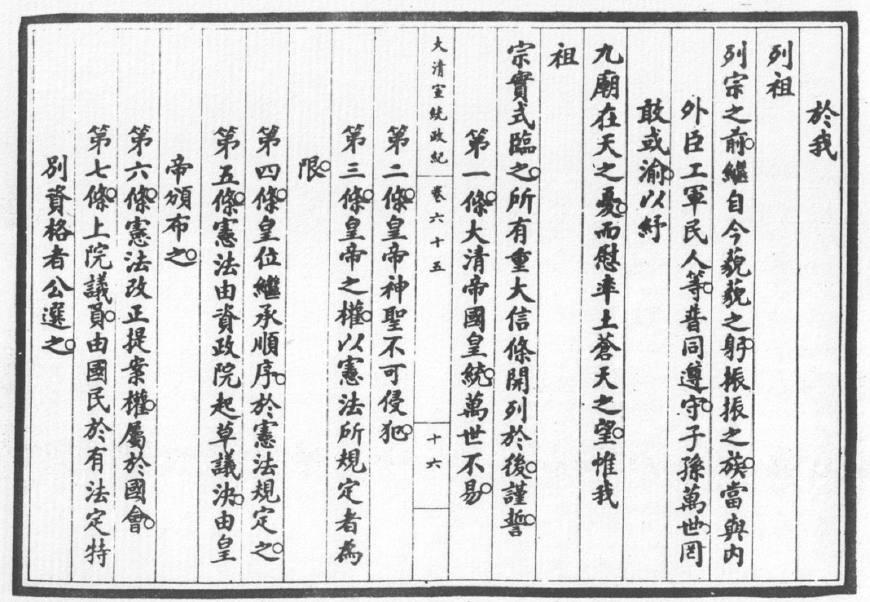 於我
列祖
列宗之前。繼自今藐藐之躬。振振之族。當與內
外臣工軍民人等。普同遵守。子孫萬世罔
敢或渝。以紓
九廟在天之憂。而慰率土蒼天之望。惟我
祖
宗實式臨之。所有重大信條開列於後。謹誓。
第一條。大清帝國皇統。萬世不易。
大清宣統政紀 卷六十五 十六
第二條。皇帝神聖不可侵犯。
第三條。皇帝之權。以憲法所規定者為
限。
第四條。皇位繼承順序。於憲法規定之。
第五條。憲法由資政院起草議決。由皇
帝頒布之。
第六條。憲法改正提案權。屬於國會。
第七條。上院議員。由國民於有法定特
別資格者公選之。